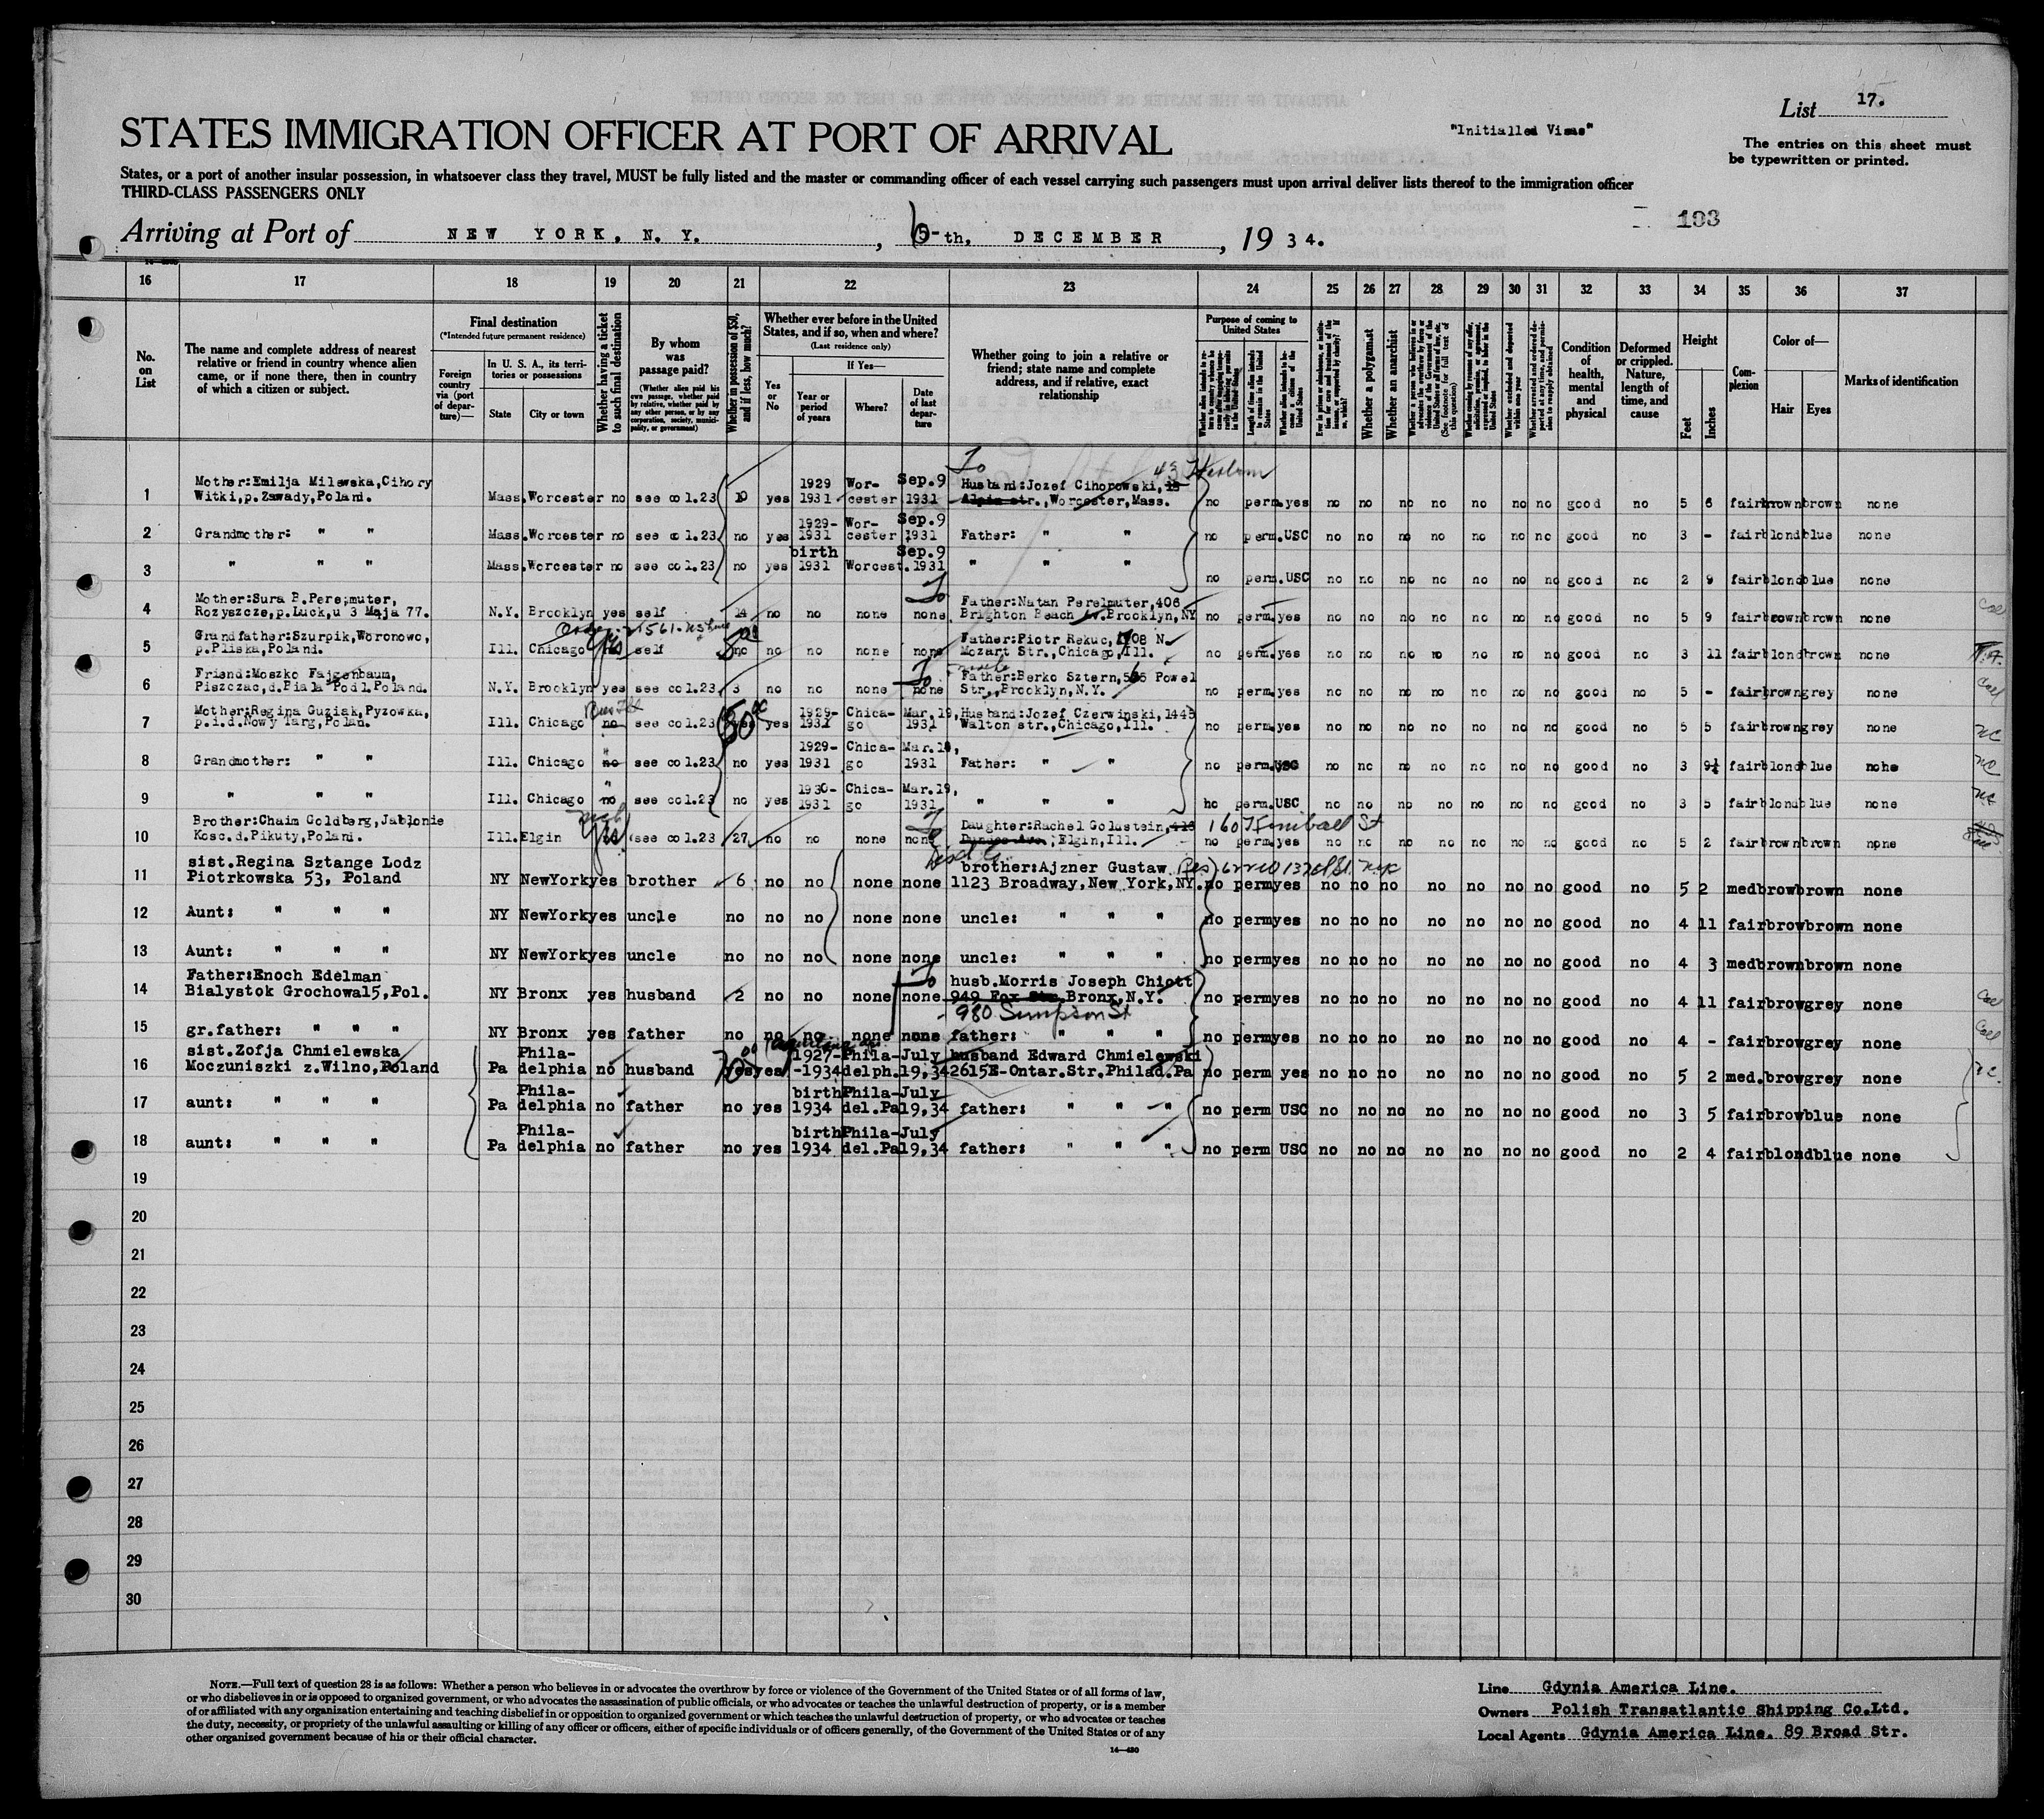 List 17.
"Initialled Visas"
The entries on this sheet must
be typewritten or printed.
STATES IMMIGRATION OFFICER AT PORT OF ARRIVAL
States, or a port of another insular possession, in whatsoever class they travel, MUST be fully listed and the master or commanding officer of each vessel carrying such passengers must upon arrival deliver lists thereof to the immigration officer
THIRD-CLASS PASSENGERS ONLY
193
Arriving at Port of NEW YORK, N. Y. , 6-th, DECEMBER , 19 34.
16 17 18 19 20 21 22 23 24 25 26 27 28 29 30 31 32 33 34 35 36 37
No. on List
The name and complete address of nearest relative or friend in country whence alien came, or if none there, then in country of which a citizen or subject.
Final destination
(*Intended future permanent residence)
Foreign country via (port of departure)—
In U. S. A., its territories or possessions
State City or town
Whether having a ticket to such final destination
By whom was passage paid?
(Whether alien paid his own passage, whether paid by relative, whether paid by any other person, or by any corporation, society, municipality, or government)
Whether in possession of $50, and if less, how much?
Whether ever before in the United States, and if so, when and where?
(Last residence only)
Yes or No
If Yes—
Year or period of years
Where?
Date of last departure
Whether going to join a relative or friend; state name and complete address, and if relative, exact relationship
Purpose of coming to United States
Length of time alien intends to remain in the United States
Whether alien intends to become a citizen of the United States
Whether a polygamist
Whether an anarchist
(See footnote for full text of this question)
Condition of health, mental and physical
Deformed or crippled. Nature, length of time, and cause
Height
Feet Inches
Complexion
Color of—
Hair Eyes
Marks of identification
1 Mother:Emilja Milewska,Cihory Witki,p.Zawady,Poland. Mass. Worcester no see col.23 10 yes 1929 1931 Worcester Sep.9 1931 To Husband:Jozef Cihorowski, 15 Alpin str.,Worcester,Mass. 43 no perm. yes no no no no no no no good no 5 6 fair brown brown none
2 Grandmother: " " Mass. Worcester no see col.23 no yes 1929-1931 Worcester Sep.9 1931 Father: " " no perm. USC no no no no no no no good no 3 - fair blond blue none
3 " " " Mass. Worcester no see col.23 no yes birth 1931 Worcest. Sep.9 1931 " " " no perm. USC no no no no no no no good no 2 9 fair blond blue none
4 Mother:Sura B.Pere;muter, Rozyszcze,p.Luck,u 3 Maja 77. N.Y. Brooklyn yes self 14 no no none none To Father:Natan Perelmuter,406 Brighton Beach Av.Brooklyn,NY no perm. yes no no no no no no no good no 5 9 fair brown brown none
5 Grandfather:Szurpik,Woronowo, p.Pliska,Poland. Ill. Chicago yes self no no no none none Father:Piotr Rekuc,1708 N. Mozart Str.,Chicago,Ill. no perm. yes no no no no no no no good no 3 11 fair blond brown none
6 Friend:Moszko Fajgenbaum, Piszczac,d.Biala Podl.Poland. N.Y. Brooklyn yes see col.23 3 no no none none To Father:Berko Sztern,565 Powel Str.,Brooklyn,N.Y. no perm. yes no no no no no no no good no 5 - fair brown grey none
7 Mother:Regina Guziak,Pyzowka, p.i.d.Nowy Targ,Polan. Ill. Chicago no see col.23 yes 50 yes 1929-1931 Chicago Mar.19, 1931 Husband:Jozef Czerwinski,1445 Walton str.,Chicago,Ill. no perm. yes no no no no no no no good no 5 5 fair brown grey none nc
8 Grandmother: " " Ill. Chicago no see col.23 no yes 1929-1931 Chicago Mar.19, 1931 Father: " " no perm. USC no no no no no no no good no 3 9½ fair blond blue none nc
9 " " " Ill. Chicago no see col.23 no yes 1930-1931 Chicago Mar.19, 1931 " " " no perm. USC no no no no no no no good no 3 5 fair blond blue none nc
10 Brother:Chaim Goldberg,Jablonie Kosc.d.Pikuty,Polani. Ill. Elgin yes see col.23 27 no no none none To Daughter:Rachel Goldstein,413 Dundee Ave.;Elgin,Ill. 160 Kimball St no perm. yes no no no no no no no good no 5 2 fair brown brown none
11 sist.Regina Sztange Lodz Piotrkowska 53, Poland NY NewYork yes brother 6 no no none none brother:Ajzner Gustaw 1123 Broadway,New York,NY. no perm yes no no no no no no no good no 5 2 med brow brown none
12 Aunt: " " " NY NewYork yes uncle no no no none none uncle: " " " no perm yes no no no no no no no good no 4 11 fair brow brown none
13 Aunt: " " " NY NewYork yes uncle no no no none none uncle: " " " no perm yes no no no no no no no good no 4 3 med brown brown none
14 Father:Enoch Edelman Bialystok Grochowa15,Pol. NY Bronx yes husband 2 no no none none To husb.Morris Joseph Chiott 949 Fox Str.Bronx,N.Y. 980 Simpson St no perm yes no no no no no no no good no 4 11 fair brow grey none
15 gr.father: " " " NY Bronx yes father no no no none none father: " " " no perm yes no no no no no no no good no 4 - fair brow grey none
16 sist.Zofja Chmielewska Moczuniszki z.Wilno,Poland Pa Philadelphia no husband yes 70 yes 1927-1934 Phila-delph. July 19,34 husband Edward Chmielewski 2615E-Ontar.Str.Philad.Pa no perm yes no no no no no no no good no 5 2 med. brow grey none
17 aunt: " " " Pa Philadelphia no father no yes birth 1934 Phila-del.Pa July 19,34 father: " " " no perm USC no no no no no no no good no 3 5 fair brow blue none
18 aunt: " " " Pa Philadelphia no father no yes birth 1934 Phila-del.Pa July 19,34 father: " " " no perm USC no no no no no no no good no 2 4 fair blond blue none
19
20
21
22
23
24
25
26
27
28
29
30
NOTE.—Full text of question 28 is as follows: Whether a person who believes in or advocates the overthrow by force or violence of the Government of the United States or of all forms of law,
or who disbelieves in or is opposed to organized government, or who advocates the assassination of public officials, or who advocates or teaches the unlawful destruction of property, or is a member
of or affiliated with any organization entertaining and teaching disbelief in or opposition to organized government or which teaches the unlawful destruction of property, or who advocates or teaches
the duty, necessity, or propriety of the unlawful assaulting or killing of any officer or officers, either of specific individuals or of officers generally, of the Government of the United States or of any
other organized government because of his or their official character.
14—430
Line Gdynia America Line.
Owners Polish Transatlantic Shipping Co.Ltd.
Local Agents Gdynia America Line. 89 Broad Str.